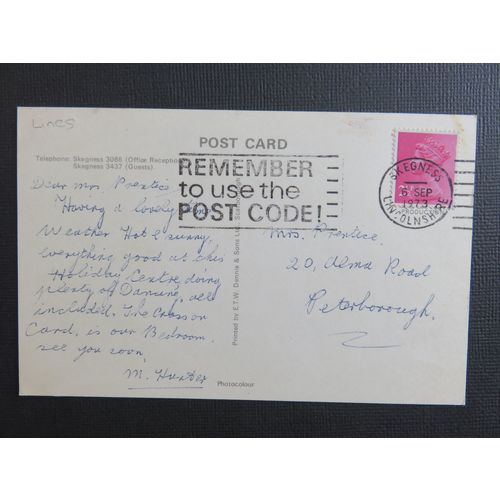 Lincs
POST CARD
Telephone: Skegness 3088 (Office Reception)
Skegness 3437 (Guests).
REMEMBER
to use the
POST CODE!
SKEGNESS
6 SEP
1973
LINCOLNSHIRE
Dear Mrs Prentice,
Having a lovely time
Weather Hot & sunny,
everything good at this
Holiday Centre, doing
plenty of Dancing, all
included. The Cross on
Card, is our Bedroom.
see you soon.
M. Hunter
Printed by E.T.W. Dennis & Sons Ltd.
Photocolour
Mrs. Prentice,
20, Alma Road
Peterborough.